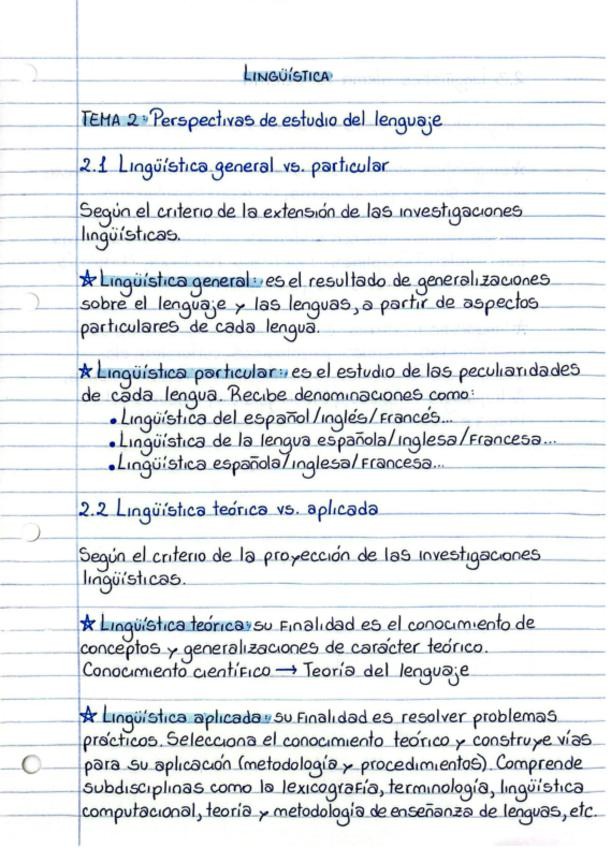 LINGÜÍSTICA
TEMA 2: Perspectivas de estudio del lenguaje
2.1 Lingüística general vs. particular
Según el criterio de la extensión de las investigaciones
lingüísticas.
☆ Lingüística general: es el resultado de generalizaciones
sobre el lenguaje y las lenguas, a partir de aspectos
particulares de cada lengua.
☆ Lingüística particular: es el estudio de las peculiaridades
de cada lengua. Recibe denominaciones como:
• Lingüística del español/inglés/Francés...
• Lingüística de la lengua española/inglesa/Francesa...
• Lingüística española/inglesa/Francesa...
2.2 Lingüística teórica vs. aplicada
Según el criterio de la proyección de las investigaciones
lingüísticas.
☆ Lingüística teórica: su Finalidad es el conocimiento de
conceptos y generalizaciones de carácter teórico.
Conocimiento científico → Teoría del lenguaje
☆ Lingüística aplicada: su Finalidad es resolver problemas
prácticos. Selecciona el conocimiento teórico y construye vías
para su aplicación (metodología y procedimientos). Comprende
subdisciplinas como la lexicografía, terminología, lingüística
computacional, teoría y metodología de enseñanza de lenguas, etc.